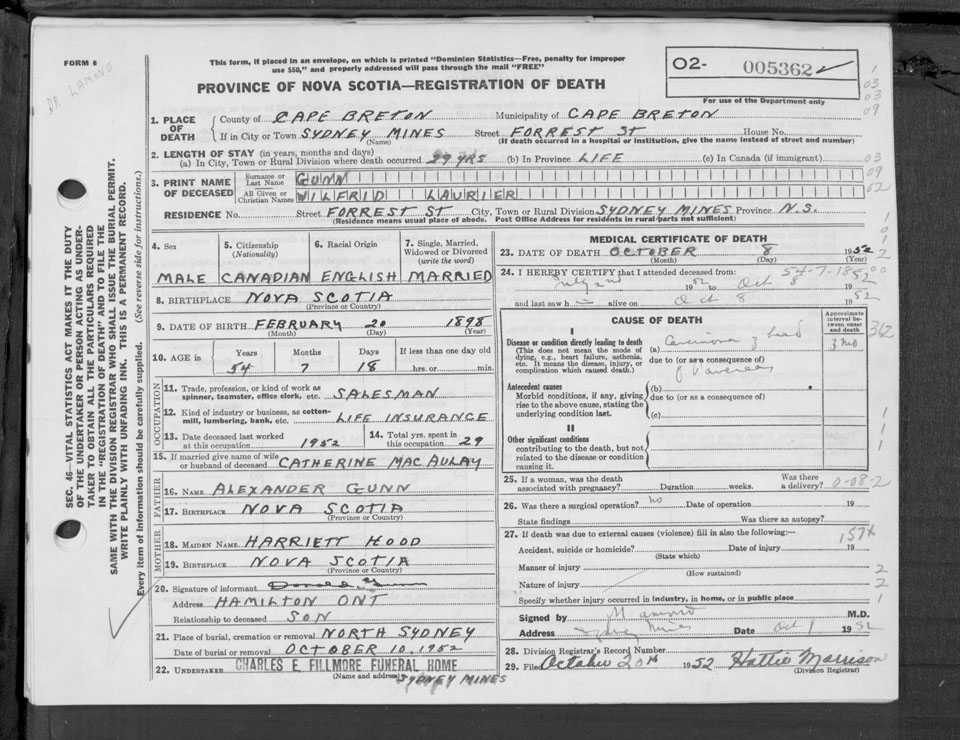 FORM 6
DR LAMOND
This form, if placed in an envelope, on which is printed "Dominion Statistics—Free, penalty for improper
use $50," and properly addressed will pass through the mail "FREE"
PROVINCE OF NOVA SCOTIA—REGISTRATION OF DEATH
02- 005362
For use of the Department only
1. PLACE OF DEATH
County of CAPE BRETON Municipality of CAPE BRETON
If in City or Town SYDNEY MINES Street FORREST ST House No.
(Name) (If death occurred in a hospital or institution, give the name instead of street and number)
2. LENGTH OF STAY (in years, months and days)
(a) In City, Town or Rural Division where death occurred 29 YRS (b) In Province LIFE (c) In Canada (if immigrant)
3. PRINT NAME OF DECEASED
Surname or Last Name GUNN
All Given or Christian Names WILFRID LAURIER
RESIDENCE No. Street FORREST ST City, Town or Rural Division SYDNEY MINES Province N.S.
(Residence means usual place of abode. Post Office Address for residents in rural parts not sufficient)
4. Sex 5. Citizenship (Nationality) 6. Racial Origin 7. Single, Married, Widowed or Divorced (write the word)
MALE CANADIAN ENGLISH MARRIED
8. BIRTHPLACE NOVA SCOTIA
(Province or Country)
9. DATE OF BIRTH FEBRUARY 20 1898
(Month) (Day) (Year)
10. AGE in Years Months Days If less than one day old
54 7 18 hrs. or min.
OCCUPATION
11. Trade, profession, or kind of work as
spinner, teamster, office clerk, etc. SALESMAN
12. Kind of industry or business, as cotton-
mill, lumbering, bank, etc. LIFE INSURANCE
13. Date deceased last worked at this occupation 1952 14. Total yrs. spent in this occupation 29
15. If married give name of wife
or husband of deceased CATHERINE MACAULAY
FATHER
16. NAME ALEXANDER GUNN
17. BIRTHPLACE NOVA SCOTIA
(Province or Country)
MOTHER
18. MAIDEN NAME HARRIETT HOOD
19. BIRTHPLACE NOVA SCOTIA
(Province or Country)
20. Signature of informant Donald Gunn
Address HAMILTON ONT
Relationship to deceased SON
21. Place of burial, cremation or removal NORTH SYDNEY
Date of burial or removal OCTOBER 10, 1952
22. UNDERTAKER CHARLES E. FILLMORE FUNERAL HOME
(Name and address) SYDNEY MINES
MEDICAL CERTIFICATE OF DEATH
23. DATE OF DEATH OCTOBER 8 1952
(Month) (Day) (Year)
54-7-18
24. I HEREBY CERTIFY that I attended deceased from:
July 1952 to Oct 8 1952
and last saw h alive on Oct 8 1952
CAUSE OF DEATH
Approximate interval between onset and death
I
Disease or condition directly leading to death
(This does not mean the mode of
dying, e.g., heart failure, asthenia,
etc. It means the disease, injury, or
complication which caused death.)
(a) Carcinoma of head 3 mo
due to (or as a consequence of)
of Pancreas
Antecedent causes
Morbid conditions, if any, giving
rise to the above cause, stating the
underlying condition last.
(b)
due to (or as a consequence of)
(c)
II
Other significant conditions
contributing to the death, but not
related to the disease or condition
causing it.
25. If a woman, was the death
associated with pregnancy? Duration weeks. Was there a delivery? 0-08-2
26. Was there a surgical operation? No Date of operation 19
State findings Was there an autopsy?
27. If death was due to external causes (violence) fill in also the following:—
157x
Accident, suicide or homicide? Date of injury 19
(State which)
Manner of injury
(How sustained)
Nature of injury
Specify whether injury occurred in industry, in home, or in public place
Signed by M.D.
Address Sydney Mines Date Oct 1952
28. Division Registrar's Record Number
29. Filed October 20th 1952 Hattie Morrison
(Division Registrar)
SEC. 46—VITAL STATISTICS ACT MAKES IT THE DUTY
OF THE UNDERTAKER OR PERSON ACTING AS UNDER-
TAKER TO OBTAIN ALL THE PARTICULARS REQUIRED
IN THE "REGISTRATION OF DEATH" AND TO FILE THE
SAME WITH THE DIVISION REGISTRAR WHO SHALL ISSUE THE BURIAL PERMIT.
WRITE PLAINLY WITH UNFADING INK. THIS IS A PERMANENT RECORD.
Every item of information should be carefully supplied. (See reverse side for instructions.)
1
03
03
09
03
09
02
362